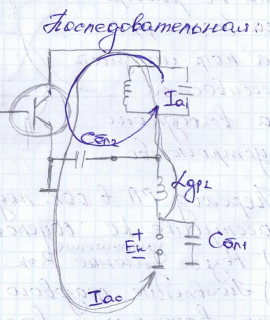 Последовательная:
Iа
Cбл2
Lдр2
+
Eк
−
Cбл1
Iао